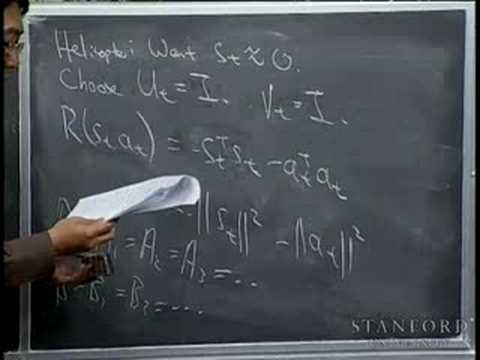 Helicopter: Want S_t ≈ 0.
Choose U_t = I. V_t = I.
R(s_t, a_t) = -s_t^T s_t - a_t^T a_t
-||s_t||^2 - ||a_t||^2
A_2 = A_3 = ...
B_1 = B_2 = ...
STANFORD